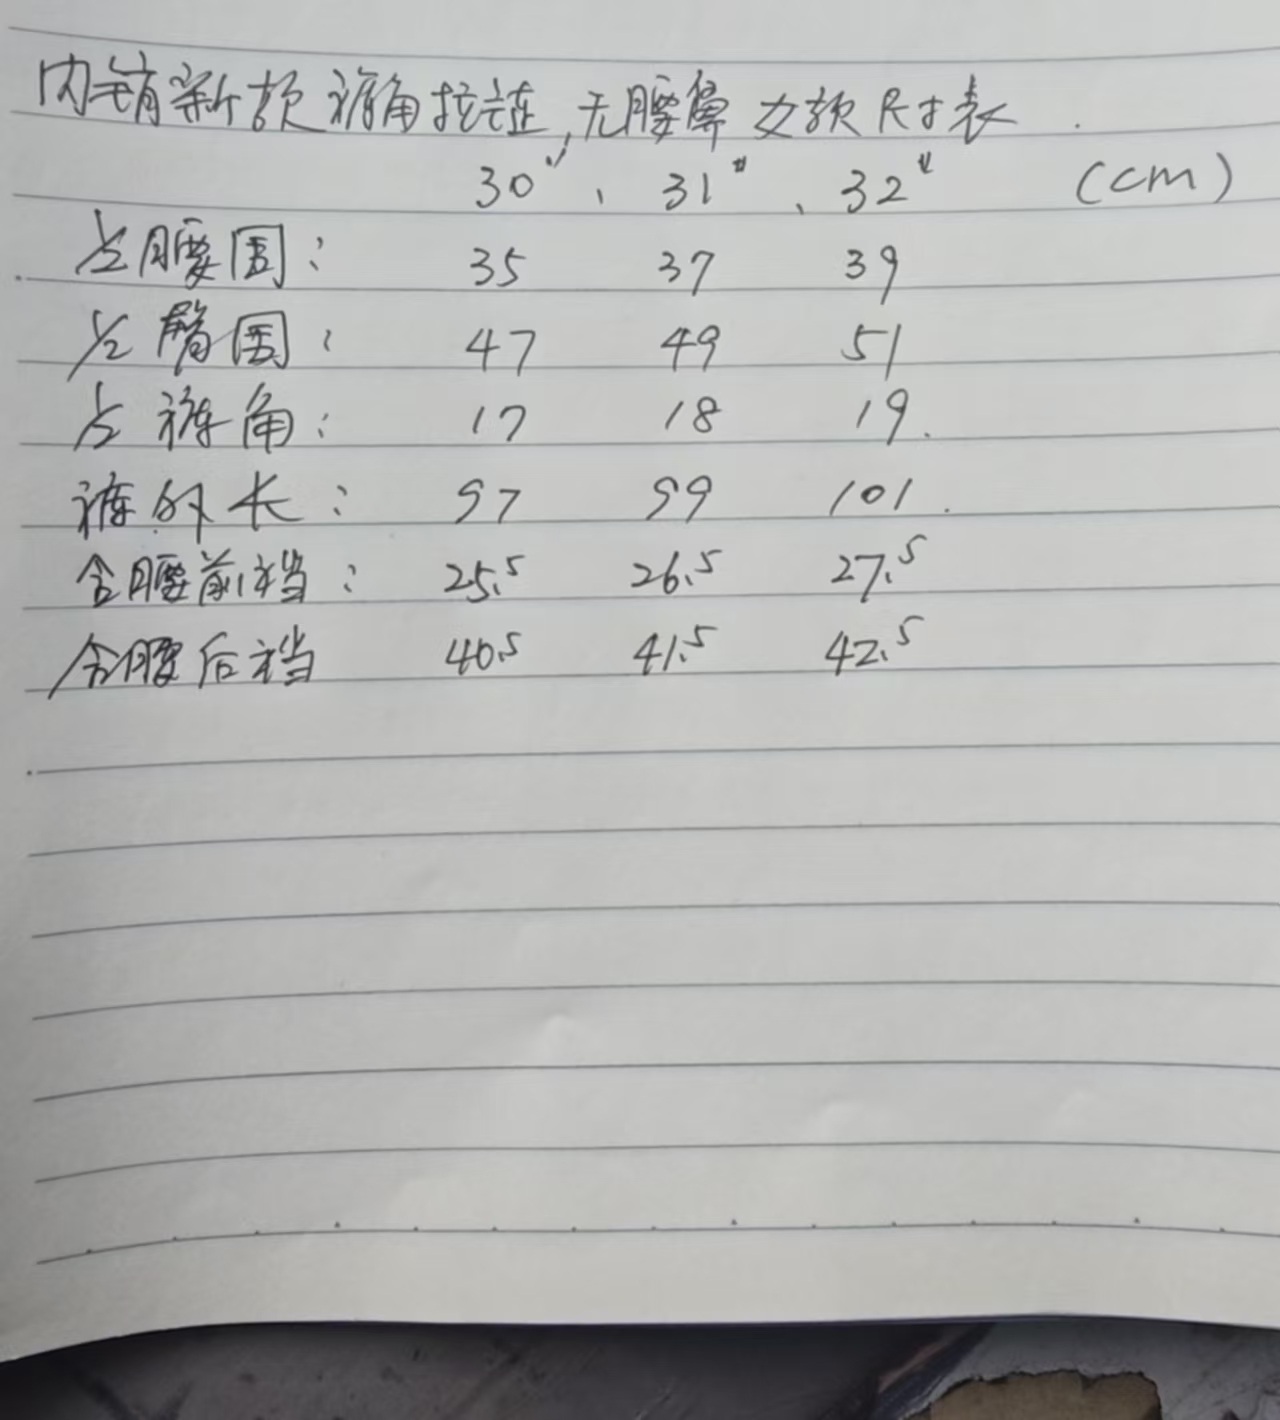 内销新款裤角拉链,无腰鼻 女款尺寸表
30"、31"、32" (cm)
½腰围: 35 37 39
½臀围: 47 49 51
½裤角: 17 18 19.
裤外长: 97 99 101.
含腰前裆: 25.5 26.5 27.5
含腰后裆 40.5 41.5 42.5